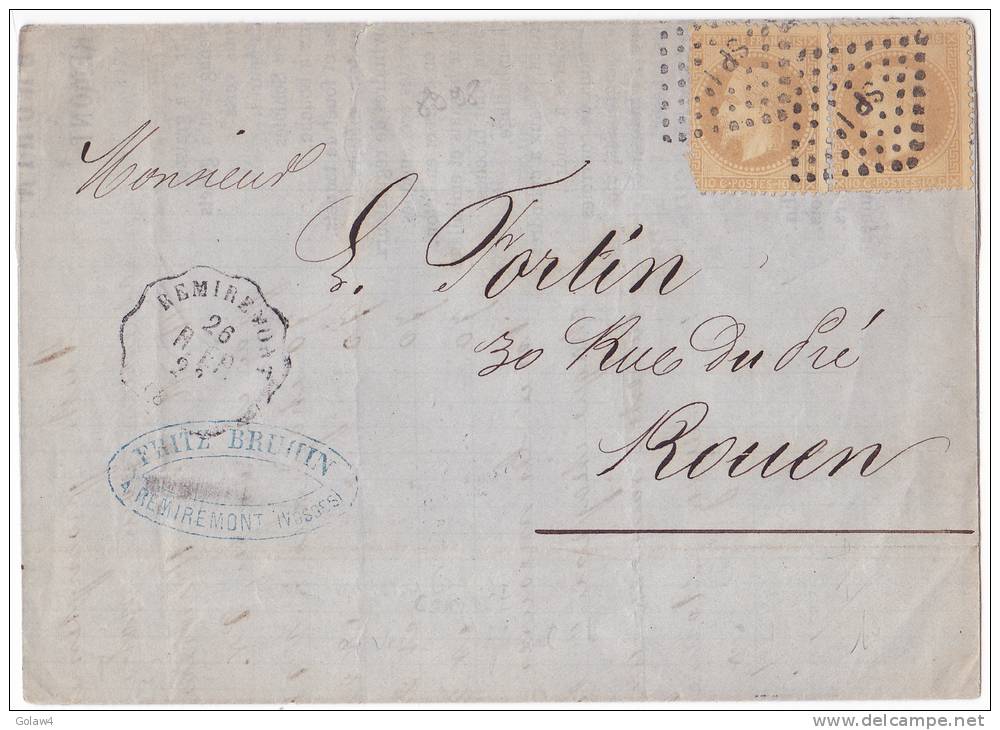 Monsieur
E. Fortin
30 Rue du Pré
Rouen
REMIREMONT
26
FRITZ BRUHIN
A REMIREMONT (VOSGES)
10 C. POSTES 10 C.
10 C. POSTES 10 C.
Golaw4
www.delcampe.net